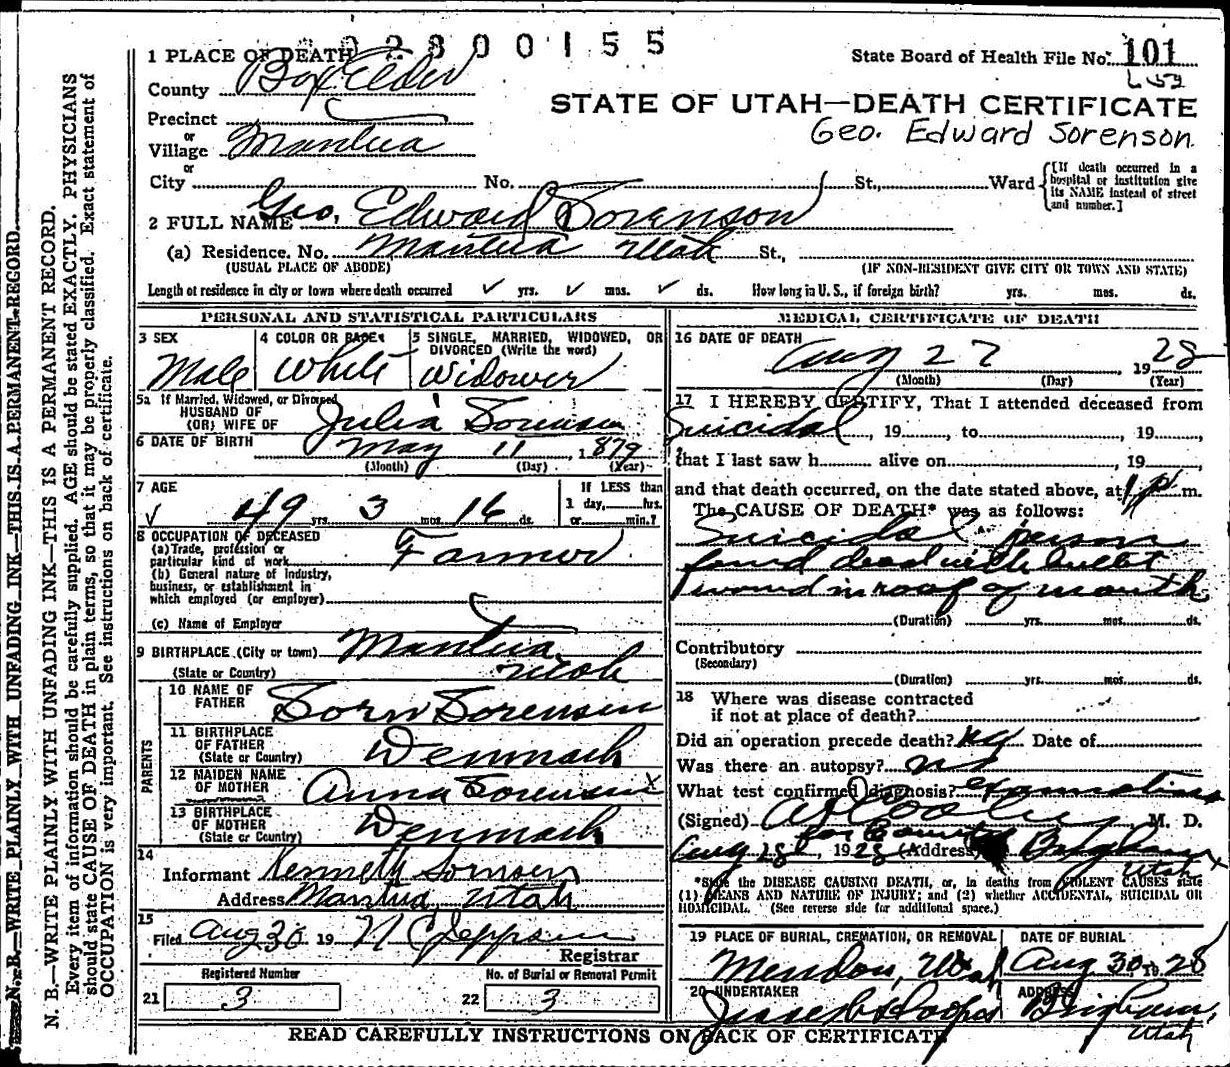 2800155
1 PLACE OF DEATH
State Board of Health File No. 101
County Box Elder
STATE OF UTAH—DEATH CERTIFICATE
Precinct
Geo. Edward Sorenson
or
Village Mantua
or
City No. St., Ward {[If death occurred in a hospital or institution give its NAME instead of street and number.]
2 FULL NAME Geo. Edward Sorenson
(a) Residence. No. Mantua Utah St.,
(USUAL PLACE OF ABODE) (IF NON-RESIDENT GIVE CITY OR TOWN AND STATE)
Length of residence in city or town where death occurred ✓ yrs. ✓ mos. ✓ ds. How long in U. S., if foreign birth? yrs. mos. ds.
PERSONAL AND STATISTICAL PARTICULARS
3 SEX 4 COLOR OR RACE 5 SINGLE, MARRIED, WIDOWED, OR
DIVORCED (Write the word)
Male White Widower
5a If Married, Widowed, or Divorced
HUSBAND OF
(OR) WIFE OF Julia Sorensen
6 DATE OF BIRTH May 11, 1879
(Month) (Day) (Year)
7 AGE If LESS than
✓ 49 yrs. 3 mos. 16 ds. 1 day, hrs.
or min.?
8 OCCUPATION OF DECEASED
(a) Trade, profession or
particular kind of work Farmer
(b) General nature of industry,
business, or establishment in
which employed (or employer)
(c) Name of Employer
9 BIRTHPLACE (City or town) Mantua
(State or Country) Utah
PARENTS
10 NAME OF
FATHER Sorn Sorensen
11 BIRTHPLACE
OF FATHER
(State or Country) Denmark
12 MAIDEN NAME
OF MOTHER Anna Sorensen x
13 BIRTHPLACE
OF MOTHER
(State or Country) Denmark
14
Informant Kenneth Sorensen
Address Mantua, Utah
15
Filed Aug 30 19 N C Jeppsen
Registrar
Registered Number No. of Burial or Removal Permit
21 3 22 3
MEDICAL CERTIFICATE OF DEATH
16 DATE OF DEATH
Aug 27, 1928
(Month) (Day) (Year)
17 I HEREBY CERTIFY, That I attended deceased from
Suicidal, 19, to, 19,
that I last saw h alive on, 19,
and that death occurred, on the date stated above, at 1 p m.
The CAUSE OF DEATH* was as follows:
Suicidal person
found dead with bullet
wound in roof of mouth
(Duration) yrs. mos. ds.
Contributory
(Secondary)
(Duration) yrs. mos. ds.
18 Where was disease contracted
if not at place of death?
Did an operation precede death? no Date of
Was there an autopsy? no
What test confirmed diagnosis? Examination
(Signed) M. D.
for County
Aug 28, 1928 (Address) Brigham
Utah
*State the DISEASE CAUSING DEATH, or, in deaths from VIOLENT CAUSES state
(1) MEANS AND NATURE OF INJURY; and (2) whether ACCIDENTAL, SUICIDAL OR
HOMICIDAL. (See reverse side for additional space.)
19 PLACE OF BURIAL, CREMATION, OR REMOVAL DATE OF BURIAL
Mendon, Utah Aug 30 1928
20 UNDERTAKER ADDRESS
Brigham,
Utah
READ CAREFULLY INSTRUCTIONS ON BACK OF CERTIFICATE
N. B.—WRITE PLAINLY WITH UNFADING INK—THIS IS A PERMANENT RECORD.
N. B.—WRITE PLAINLY WITH UNFADING INK—THIS IS A PERMANENT RECORD.
Every item of information should be carefully supplied. AGE should be stated EXACTLY. PHYSICIANS
should state CAUSE OF DEATH in plain terms, so that it may be properly classified. Exact statement of
OCCUPATION is very important. See instructions on back of certificate.